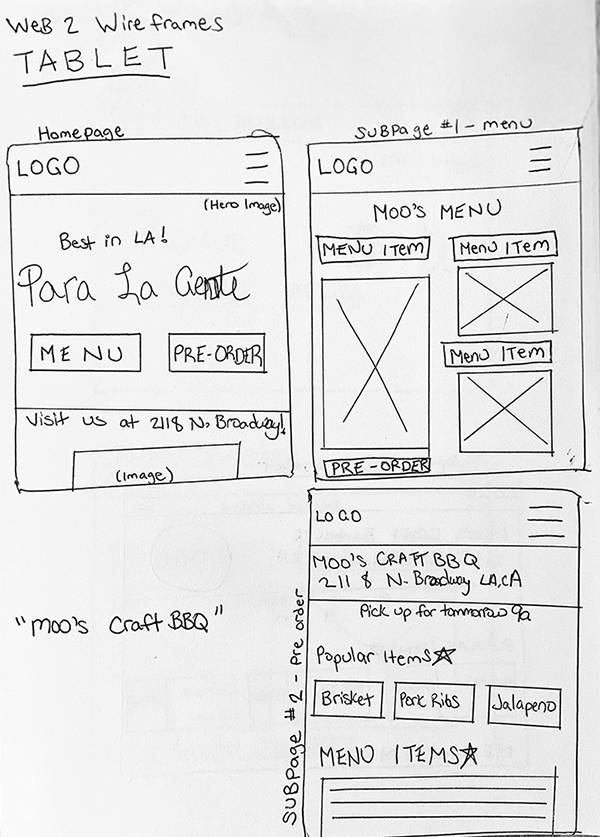 WeB 2 Wireframes
TABLET
Homepage
LOGO
(Hero Image)
Best in LA!
Para La Gente
MENU
PRE-ORDER
Visit us at 2118 N. Broadway!
(Image)
SUBPage #1 - menu
LOGO
MOO'S MENU
MENU ITEM
Menu ITEM
Menu ITem
PRE-ORDER
"Moo's Craft BBQ"
SUBPage #2 - Pre order
LOGO
MOO'S CRAFT BBQ
2118 N. Broadway LA, CA
Pick up for tommorow 9a
Popular Items
Brisket
Pork Ribs
Jalapeno
MENU ITEMS